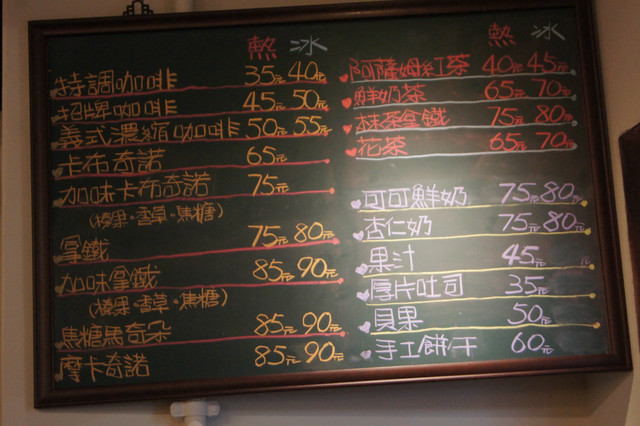 熱 冰
特調咖啡 35元 40元
招牌咖啡 45元 50元
義式濃縮咖啡 50元 55元
卡布奇諾 65元
加味卡布奇諾 75元
(榛果·香草·焦糖)
拿鐵 75元 80元
加味拿鐵 85元 90元
(榛果·香草·焦糖)
焦糖馬奇朵 85元 90元
摩卡奇諾 85元 90元
熱 冰
阿薩姆紅茶 40元 45元
鮮奶茶 65元 70元
抹茶拿鐵 75元 80元
花茶 65元 70元
可可鮮奶 75元 80元
杏仁奶 75元 80元
果汁 45元
厚片吐司 35元
貝果 50元
手工餅干 60元